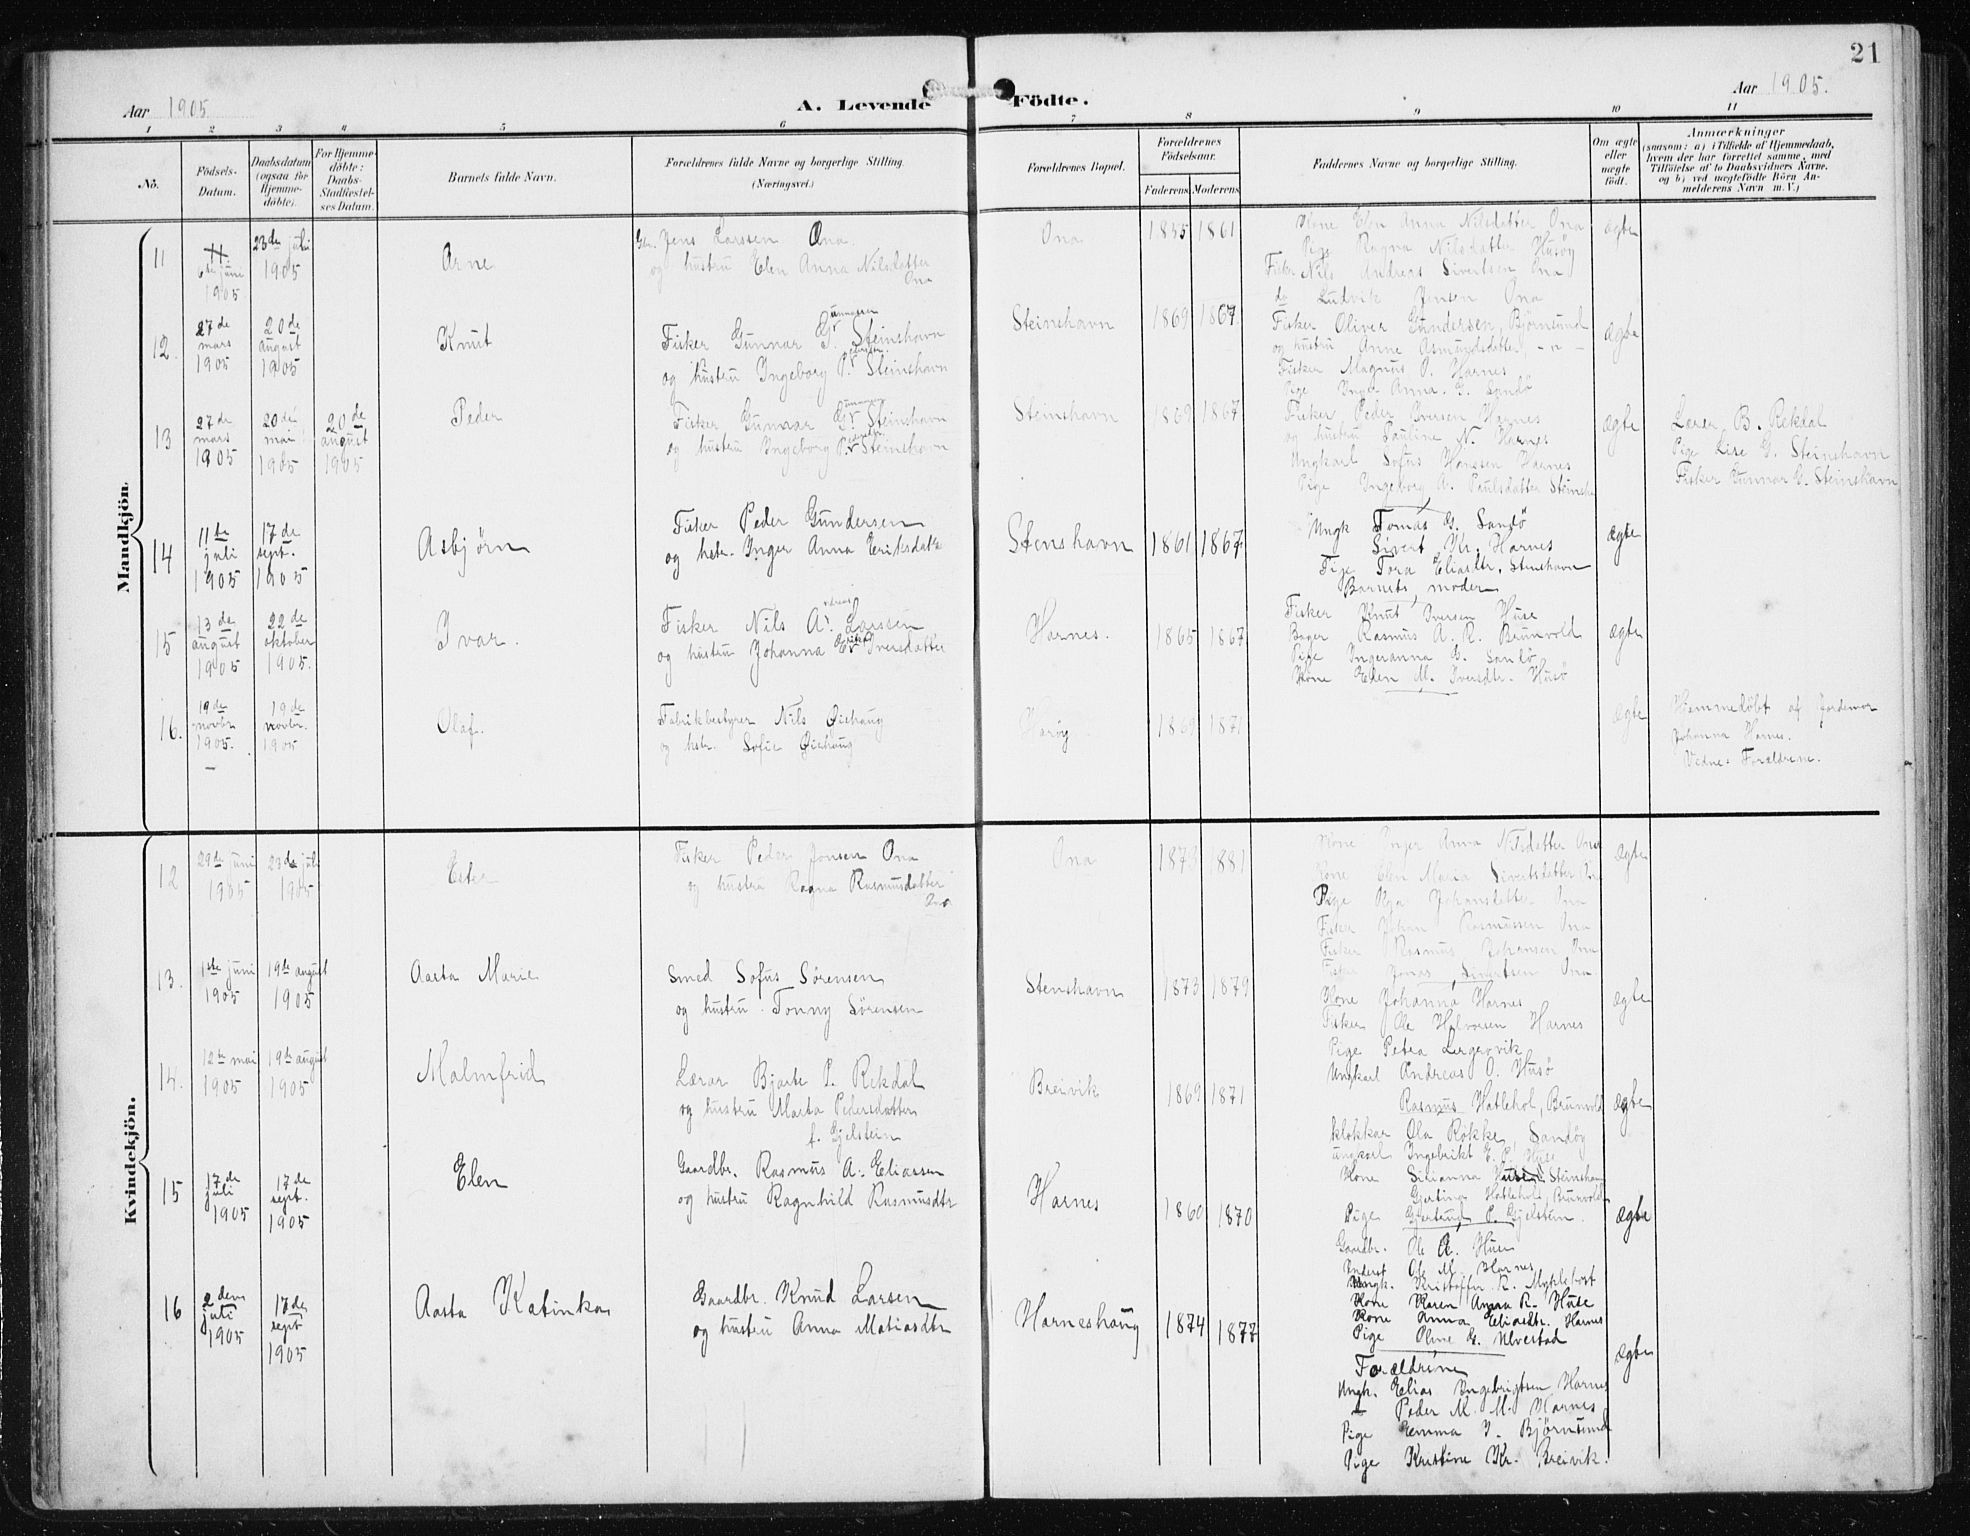 21
Aar 1905
A. Levende
Födte.
Aar 1905.
1 2 3 4 5 6 7 8 9 10 11
No.
Födsels-
Datum.
Daabsdatum
(ogsaa for
Hjemme-
döbte).
For Hjemme-
döbte:
Daabs-
Stadfæstel-
ses Datum.
Barnets fulde Navn.
Forældrenes fulde Navne og borgerlige Stilling.
(Næringsvei.)
Forældrenes Bopæl.
Forældrenes
Födselsaar.
Faderens Moderens
Faddernes Navne og borgerlige Stilling.
Om ægte
eller
uægte
født.
Anmærkninger
(saasom: a) i Tilfælde af Hjemmedaab,
hvem der har forrettet samme, med
Tilföielse af to Daabsvidners Navne.
og b) ved uægtefödte Börn An-
melderens Navn m. V.)
Mandkjön.
11
6te juni
1905
23de juli
1905
Arne
Jens Larssen Ona
og hustru Elen Anna Nilsdatter
Ona
Ona
1855 1861
Kone Elen Anna Nilsdatter Ona
Pige Ragna Nilsdatter Husøy
Fisker Nils Andreas Sivertsen Ona
do Ludvik Jensen Ona
ægte
12.
27de
mars
1905
20de
august
1905
Knut
Fisker Gunnar G. Steinshavn
og hustru Ingeborg P. Steinshavn
Steinshavn
1869 1867
Fisker Oliver Gundersen, Bjørnsund
og hustru Anne Asmundsdatter, - " -
Fisker Magnus P. Harnes
Pige Inger Anna G. Sandø
ægte
13
27de
mars
1905
20de
mai
1905
20de
august
1905
Peder
Fisker Gunnar G. Steinshavn
og hustru Ingeborg P. Steinshavn
Steinshavn
1869 1867
Fisker Peder Iversen Harnes
og hustru Pauline N. Harnes
Ungkarl Sofus Hanssen Harnes
Pige Ingeborg A. Paulsdatter Steinsh
ægte
Lærer B. Rekdal
Pige Lise G. Steinshavn
Fisker Gunnar G. Steinshavn
14
11te
juli
1905
17de
sept.
1905
Asbjørn
Fisker Peder Gundersen
og hstr. Inger Anna Eriksdatr
Stenshavn
1861 1867
Ungk Tomas G. Sandö
Sivert Kr. Harnes
Pige Tora Eliasdtr. Stenshavn
Barnets moder
ægte
15
13de
august
1905
22de
oktober
1905.
Ivar.
Fisker Nils A. Larssen
og hustru Johanna E. Iversdatter
Harnes.
1865 1867
Fisker Knut Iversen Huse
Bager Rasmus A. R. Brunvold
Pige Ingeranna G. Sandö
Kone Elen M. Iversdtr. Husö
ægte
16.
19de
novbr
1905.
19de
novbr.
1905
Olaf.
Fabrikbestyrer Nils Øiehaug
og hstr. Sofie Øiehaug
Harøy
1869 1871
ægte
Hjemmedøbt af Jordemor
Johanna Harnes.
Vidne: Forældrene.
Kvindekjön.
12
29de juni
1905
23de juli
1905
Ester
Fisker Peder Jonsen Ona
og hustru Ragna Rasmusdatter
Ona
Ona
1873 1881
Kone Inger Anna Nilsdatter Ona
Kone Elen Maria Sivertsdatter Ona
Pige Johansdatter Ona
Fisker Johan Rasmussen Ona
Fisker Rasmus Johansen Ona
Fisker Jonas Sivertsen Ona
ægte
13.
1ste juni
1905
19de august
1905
Aasta Marie
Smed Sofus Sørensen
og hustru Tonny Sørensen
Stenshavn
1873 1879
Kone Johanna Harnes
Fisker Ole Halvorsen Harnes
Pige Petra Lergrovik
Ungkarl Andreas O. Husö
ægte
14.
12te mai
1905
19de august
1905
Malmfrid
Lærar Bjarte P. Rekdal
og hustru Marta Pedersdatter
f. Gjelstein
Breivik
1869 1871
Rasmus Hatlehol, Brunvold
klokkar Ola Røkke, Sandøy
ungkarl Ingebrikt E. P. Huse
Kone Silianna Steinshavn
Gjertine Hatlehol, Brunvold
Pige Gjertrud P. Gjelstein.
ægte
15
17de
juli
1905
17de
sept.
1905
Elen
Gaardbr. Rasmus A. Eliassen
og hustru Ragnhild Rasmusdtr
Harnes
1860 1870
Gaardbr. Ole A. Huse
Inderst Ole M. Harnes
Ungk. Kristoffer R. Myklebost
Kone Karen Anna R. Huse
Kone Anna Eliasdtr. Harnes
Pige Oline E. Ulvestad
ægte
16
2den
juli
1905
17de
sept
1905
Aasta Katinka
Gaardbr. Knud Larsen
og hustru Anna Matiasdtr
Harneshaug
1874 1877
Forældrene
Ungk. Elias Ingebrigtsen Harnes
— Peder M. M. Harnes
Pige Emma I. Bjørnsund
Pige Kristine Kr. Breivik.
ægte